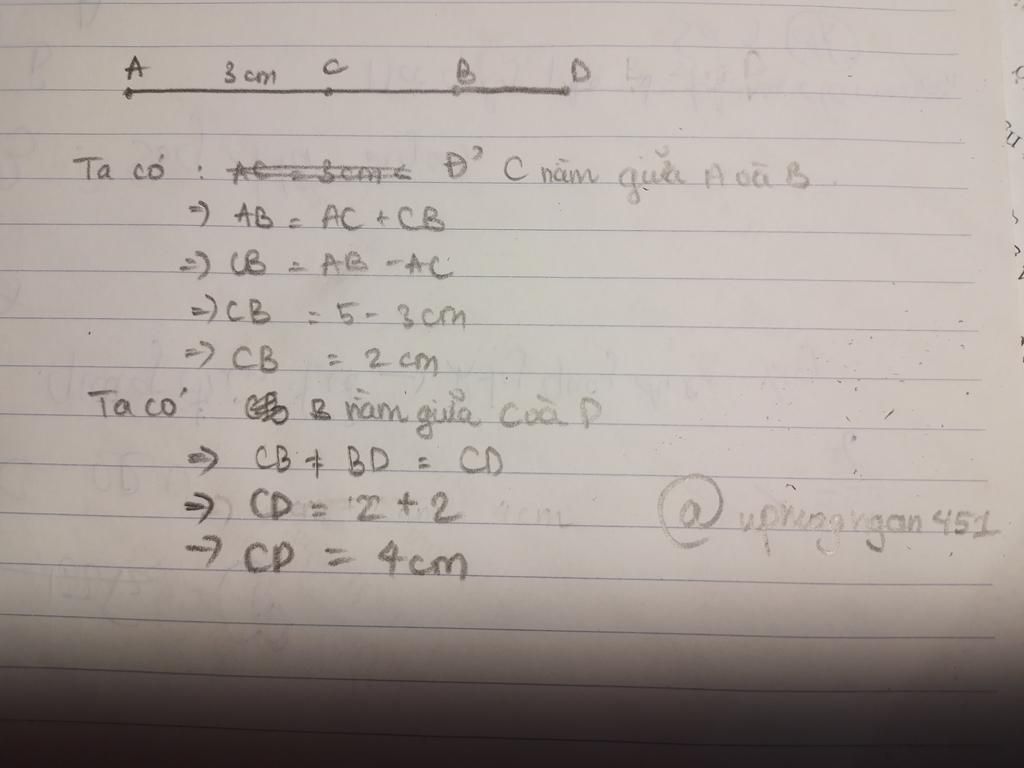 A 3 cm C B D
Ta có : AC = 3 cm < Đ² C nằm giữa A và B
=> AB = AC + CB
=> CB = AB - AC
=> CB = 5 - 3 cm
=> CB = 2 cm
Ta có B nằm giữa C và D
=> CB + BD = CD
=> CD = 2 + 2
=> CD = 4 cm